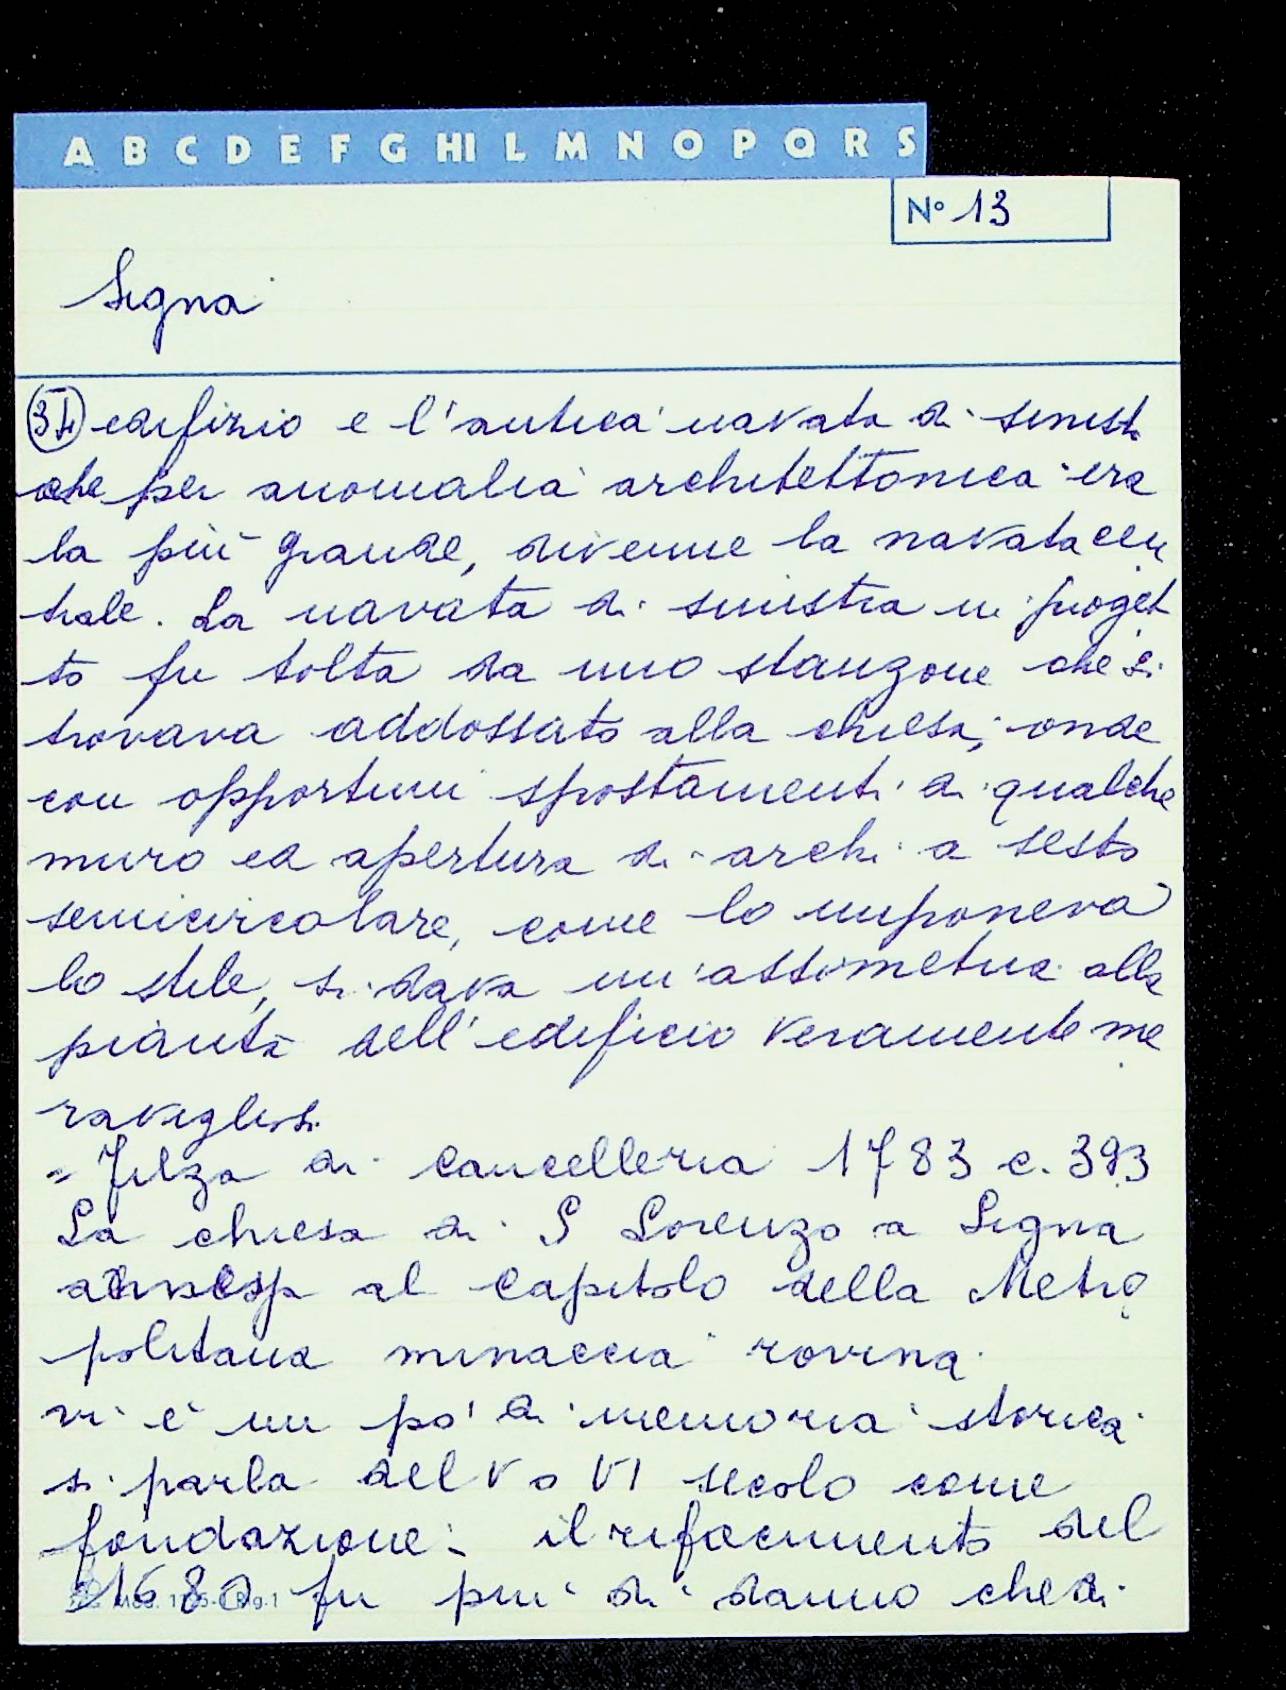 A B C D E F G HI L M N O P Q R S
N° 13
Signa
edifizio e l'antica navata di sinist
che per anomalia architettonica era
la più grande, divenne la navata cen
trale. La navata di sinistra in proget
to fu tolta da uno stanzone che si
trovava addossato alla chiesa; onde
con opportuni spostamenti di qualche
muro ed apertura di archi a sesto
semicircolare, come lo imponeva
lo stile, si dava un'assimetria alla
pianta dell'edificio veramente me
ravigliosa.
= Filza di cancelleria 1783 c. 393
La chiesa di S Lorenzo a Signa
al Capitolo della Metro
politana minaccia rovina.
vi è un po' di memoria storica
si parla del V o VI secolo come
fondazione: il rifacimento del
1680 fu più di danno che di